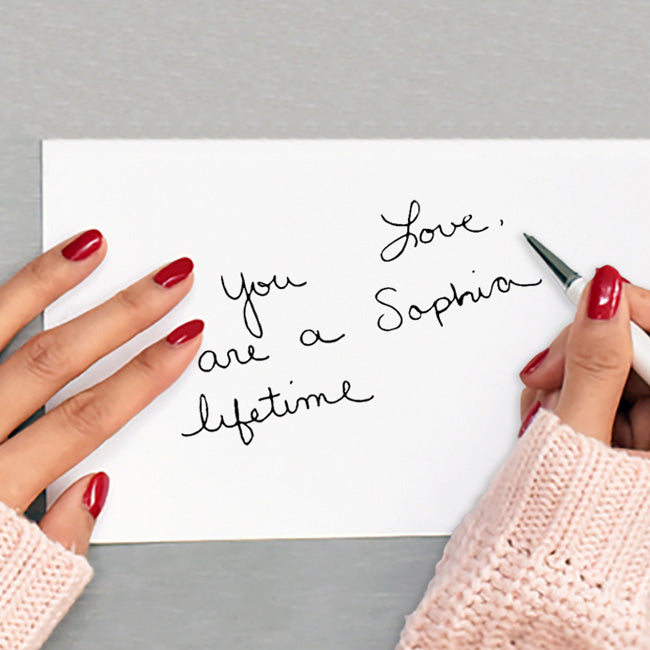 You
are a
lifetime
Love,
Sophia